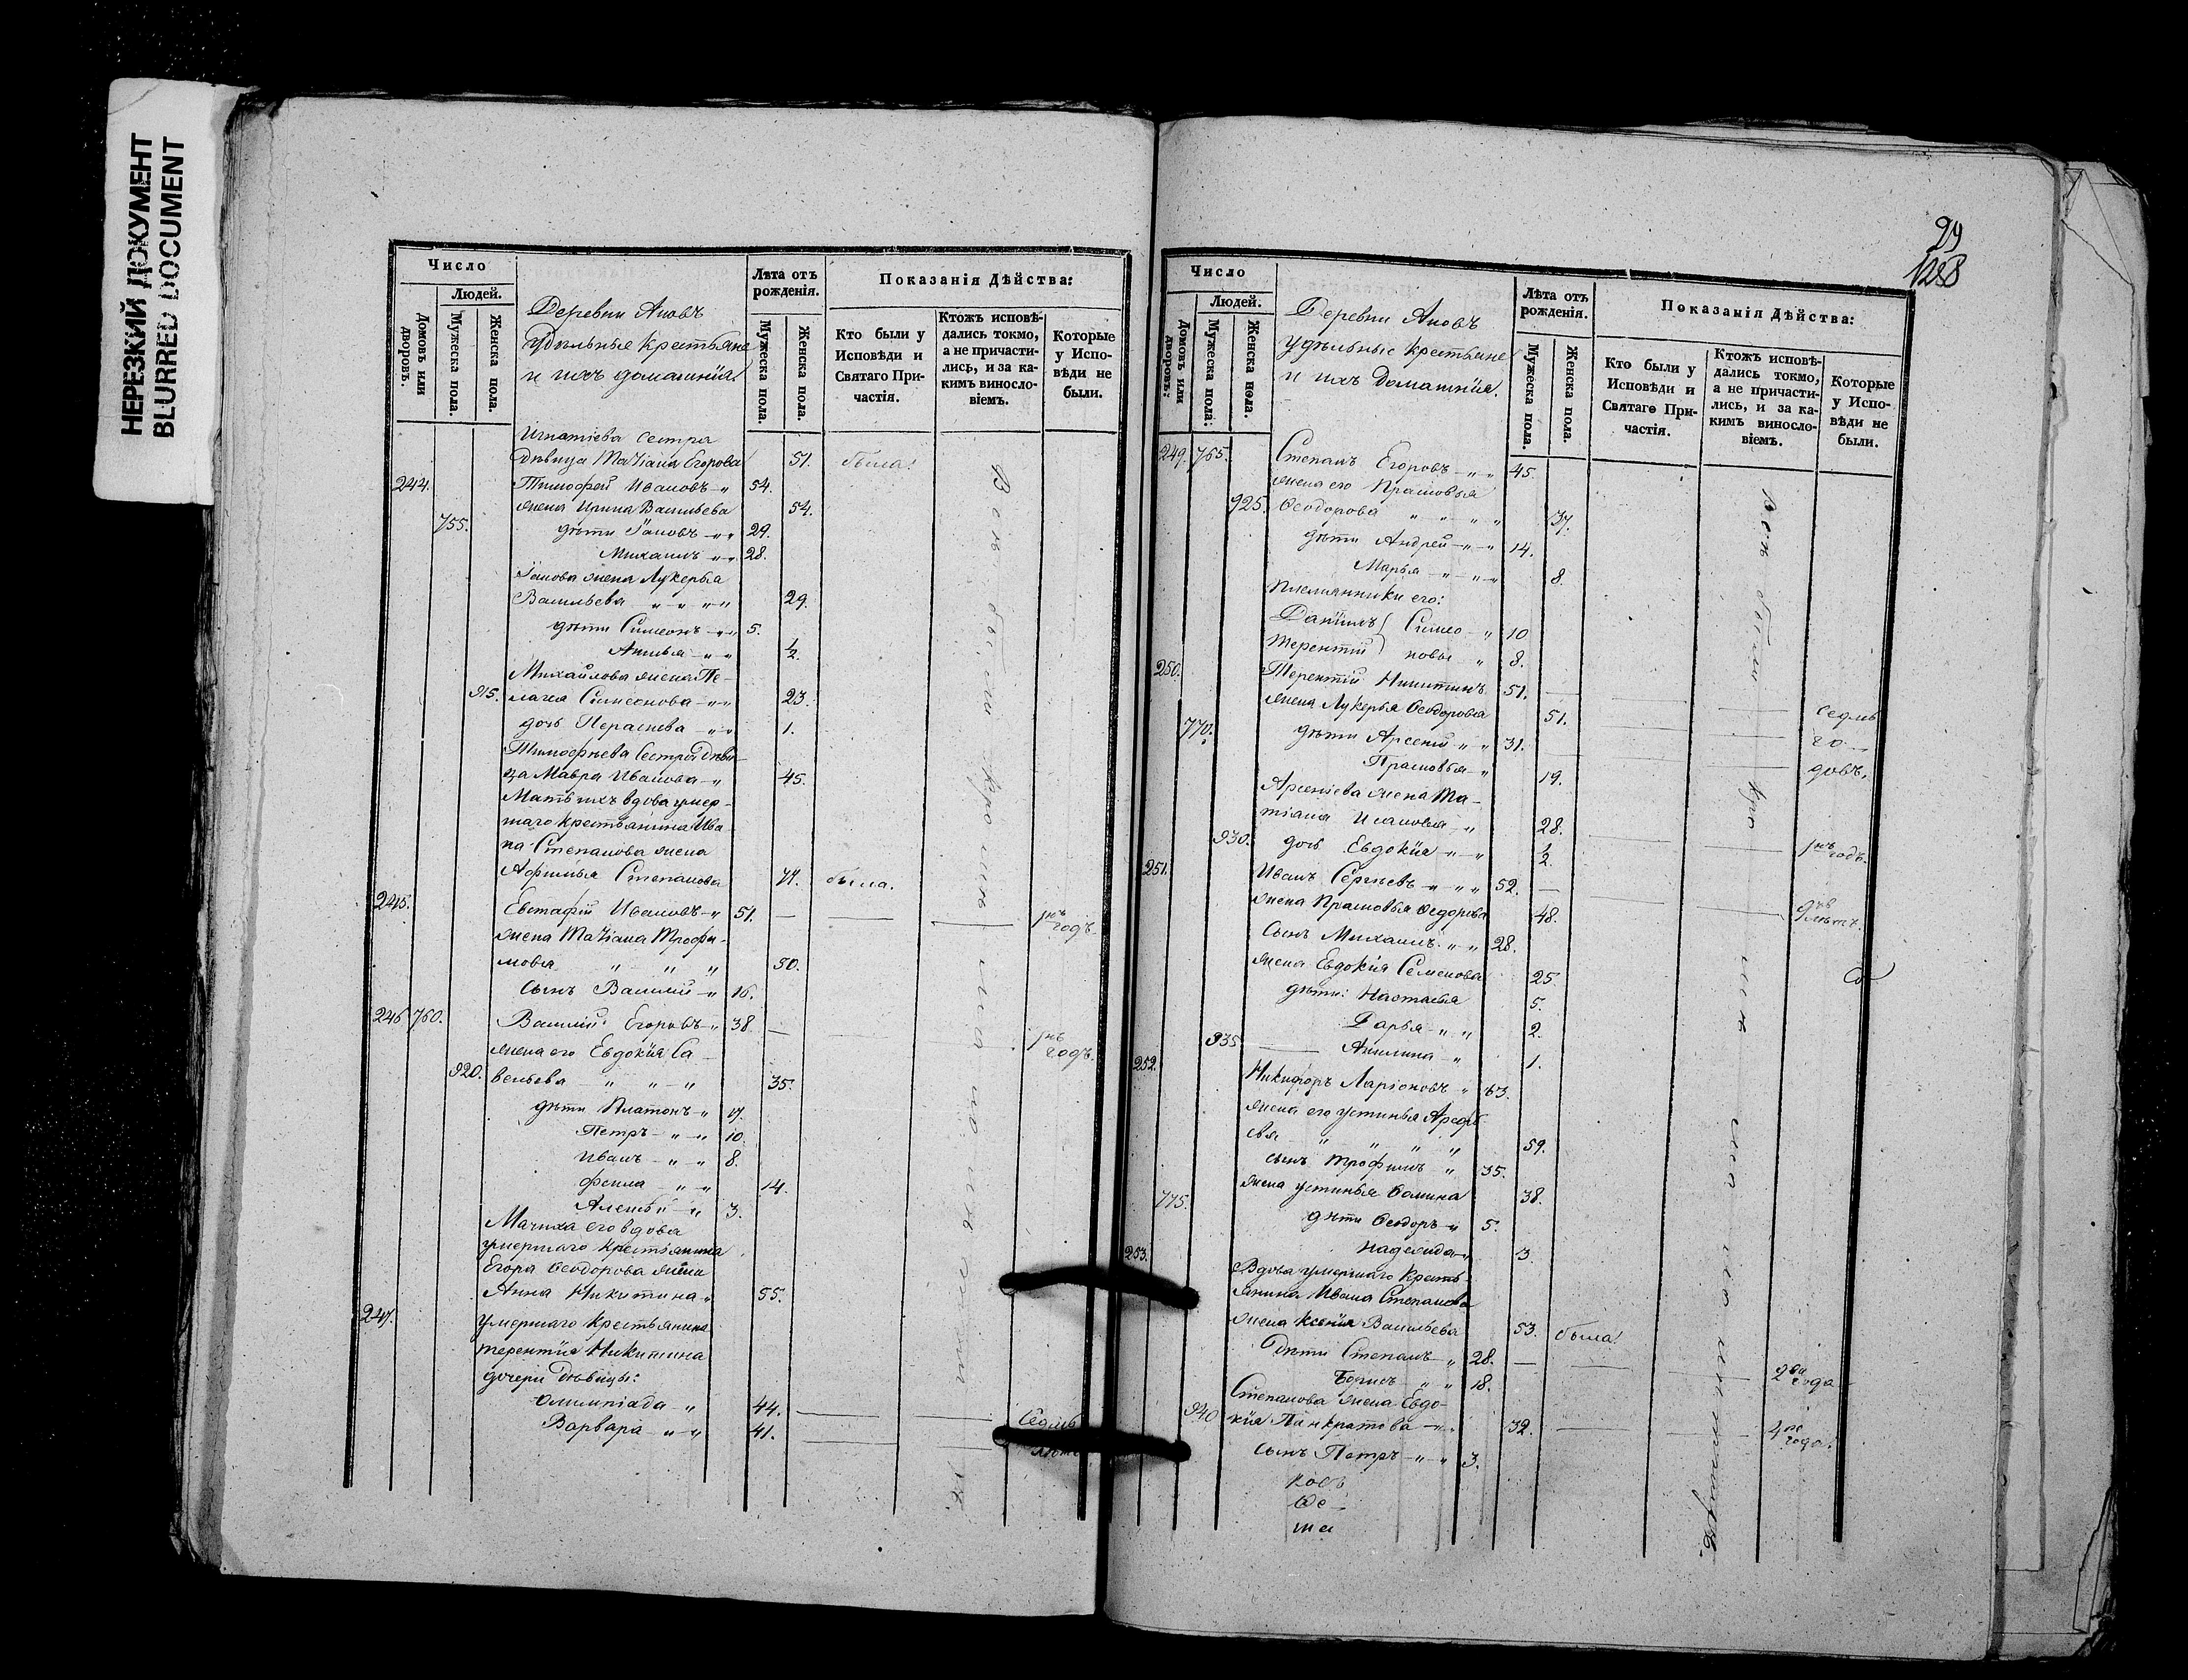 НЕРЕЗКИЙ ДОКУМЕНТ
BLURRED DOCUMENT
Число
Людей.
Домовъ или дворовъ.
Мужеска пола.
Женска пола.
Деревни Аповъ
Удѣльные крестьяне
и ихъ домашнія.
Лѣта отъ рожденія.
Мужеска пола.
Женска пола.
Показанія Дѣйства:
Кто были у Исповѣди и Святаго Причастія.
Ктожъ исповѣдались токмо, а не причастились, и за какимъ винословіемъ.
Которые у Исповѣди не были.
Игнатіева сестра
дѣвица Татіана Егорова 51. была.
244. Тимофей Ивановъ 54.
жена Ирина Васильева 54.
755. дѣти 29.
Михаилъ 28.
жена Лукерья
Васильева 29.
дѣти Симеонъ 5.
½.
Михайлова жена Пе-
915. лагея Симеонова 23.
дочь 1.
Тимофѣева сестра дѣви-
ца Мавра Иванова 45.
Мать ихъ вдова умер-
шаго крестьянина Ива
на Степанова жена
Афимья Степанова была.
245. Евстафій Ивановъ 51. годъ.
жена Татіана Трофи-
мова 50.
сынъ Василій 16.
246 760. Василій Егоровъ 38 годъ.
жена его Евдокія Са-
920. вельева 35.
дѣти Платонъ
Петръ 10.
Иванъ 8.
14.
3.
Мачиха его вдова
умершаго крестьянина
Егора Ѳеодорова жена
Анна Никитина 55.
247. умершаго крестьянина
Терентія Никитина
дочери дѣвицы:
Олимпіада 44. Седмь
Варвара 41. лѣтъ
29
1288
Число
Людей.
Домовъ или дворовъ:
Мужеска пола:
Женска пола.
Деревни Аповъ
Удѣльные крестьяне
и ихъ домашнія.
Лѣта отъ рожденія.
Мужеска пола.
Женска пола.
Показанія Дѣйства:
Кто были у Исповѣди и Святаго Причастія.
Ктожъ исповѣдались токмо, а не причастились, и за какимъ винословіемъ.
Которые у Исповѣди не были.
249. 765. Степанъ Егоровъ 45.
жена его Прасковья
925. Ѳеодорова 37.
дѣти Андрей 14.
Марья 8.
Племянники его:
Даніилъ Симео 10
Терентій новы 8.
250. Терентій Никитинъ 51.
жена Лукерья Ѳеодорова 51. седмь
770. дѣти Арсеній 31. го-
Прасковья 19. довъ.
Арсеніева жена Та-
тіана 28.
930. дочь Евдокія ½. годъ.
251. Иванъ Сергѣевъ 52.
жена Прасковья Ѳедорова 48. лѣтъ.
сынъ Михаилъ 28.
жена Евдокія Семенова 25.
дѣти: Настасья 5.
Дарья 2.
935 Акилина 1.
252. Никифоръ Ларіоновъ 63.
жена его Устинья
59.
сынъ Трофимъ 35.
775. жена Устинья Ѳомина 38.
дѣти Ѳеодоръ 5.
3
253. Вдова умершаго кресть
янина Ивана Степанова
жена Ксенія Васильева 53. была.
дѣти Степанъ 28. года
Борисъ 18.
Степанова жена Евдо-
940 кія Панкратова 32. года.
сынъ Петръ 3.